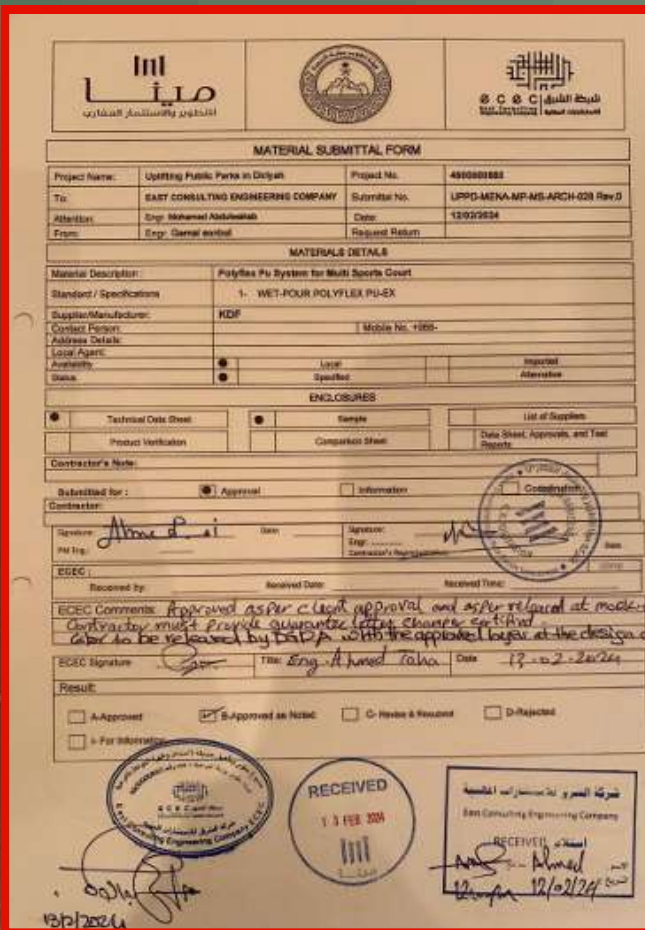 مينا
للتطوير والاستثمار العقاري
ECEC
شركة الشرق
East Consulting
Engineering Company
MATERIAL SUBMITTAL FORM
Project Name: Uplifting Public Parks in Diriyah Project No.
To: EAST CONSULTING ENGINEERING COMPANY Submittal No. UPPD-MENA-MP-MS-ARCH-028 Rev.0
Attention: Engr. Mohamed Date: 12/02/2024
From: Engr. Gamal Request Return
MATERIALS DETAILS
Material Description: Polyflex Pu System for Multi Sports Court
Standard / Specifications 1- WET-POUR POLYFLEX PU-EX
Supplier/Manufacturer: KDF
Contact Person: Mobile No. +966-
Address Details:
Local Agent:
Availability Local Imported
Status Specified Alternative
ENCLOSURES
Technical Data Sheet Sample List of Suppliers
Product Verification Comparison Sheet Data Sheet, Approvals, and Test Reports
Contractor's Note:
Submitted for : Approval Information Coordination
Contractor:
Signature: Date: Signature: Date
PM Eng.: Engr. Contractor's Representative
ECEC :
Received by: Received Date: Received Time:
ECEC Comments: Approved as per client approval and as per released at mock-
Contractor must provide guarantee letter
to be released by DGDA with the approved layer at the design
ECEC Signature Title: Eng. Ahmed Taha Date 13-02-2024
Result:
A-Approved B-Approved as Noted C- Revise & Resubmit D-Rejected
I- For Information
East Consulting Engineering Company ECEC
RECEIVED
13 FEB 2024
مينا
East Consulting Engineering Company
RECEIVED استلام
Ahmed
12/02/24
13/2/2024